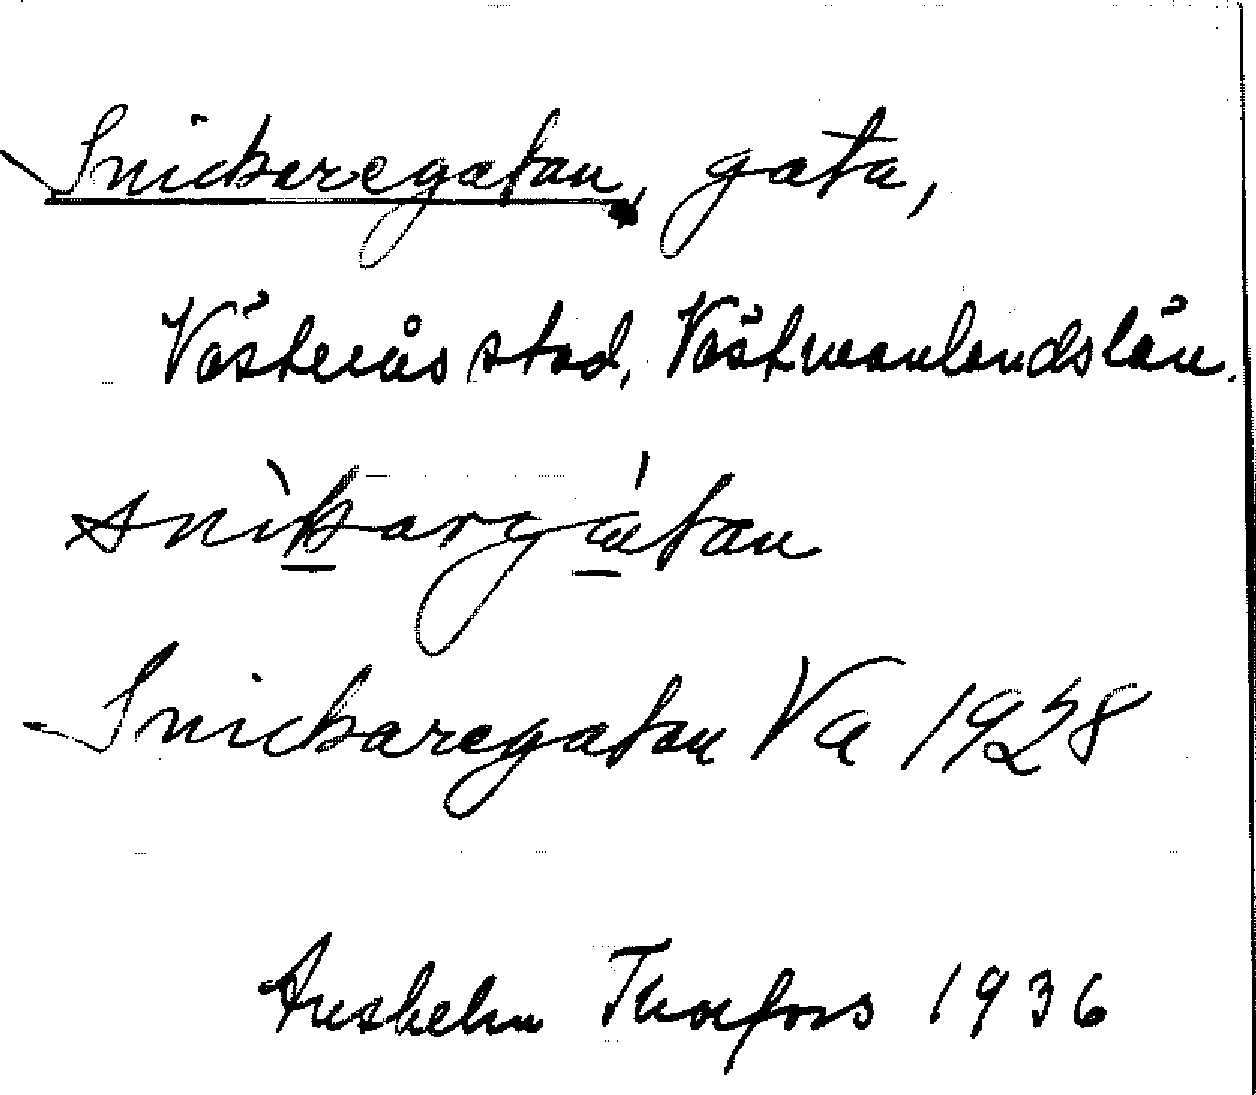 Snickaregatan, gata,
Västerås stad, Västmanlands län.
snìkargátan
Snickaregatan Va 1928
Anshelm Thorfors 1936